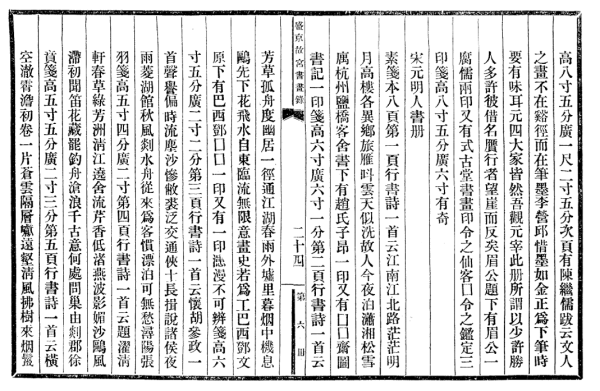 高八寸五分廣一尺二寸五分次頁有陳繼儒跋云文人
之畫不在谿徑而在筆墨李營邱惜墨如金正爲下筆時
要有味耳元四大家皆然吾觀元宰此册所謂以少許勝
人多許彼借名贋行者望崖而反矣眉公題下有眉公一
腐儒兩印又有式古堂書畫印令之仙客口令之鑑定三
印箋高八寸五分廣六寸有奇
宋元明人書册
素箋本八頁第一頁行書詩一首云江南江北路茫茫明
月高樓各異鄉旅雁呌雲天似洗故人今夜泊瀟湘松雪
寓杭州鹽橋客舍書下有趙氏子昂一印又有口口齋圖
書記一印箋高六寸廣六寸一分第二頁行書詩一首云
盛京故宮書畫錄
二十四
第六册
芳草孤舟度幽居一徑通江湖春雨外墟里暮烟中機息
鷗先下花飛水自東臨流無限意史若爲工巴西鄧文
原下有巴西鄧口口一印又有一印漶漫不可辨箋高六
寸五分廣二寸二分第三頁行書詩一首云懷胡參政一
首聲譽偏時流塵沙慘敝裘泛交通俠士長揖說諸侯夜
雨菱湖館秋風剡水舟從來爲客慣漂泊可無愁潯陽張
羽箋高五寸四分廣二寸第四頁行書詩一首云題濯清
軒春草綠芳洲淸江遠舍流芹香低渚燕波影媚沙鷗風
滯初聞笛花藏罷釣舟滄浪千古意何處問巢由剡郡徐
賁箋高五寸五分廣二寸三分第五頁行書詩一首云橫
空澈霄澹初卷一片蒼雲隔層巘遠壑淸風拂樹來烟鬟